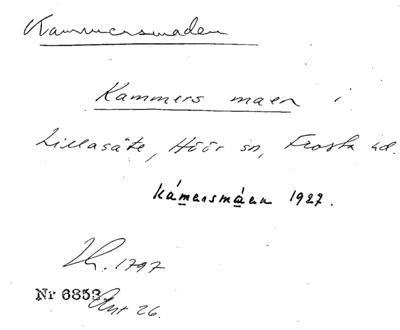 Kammersmaden
Kammers maen i
Lillasäte, Höör sn, Frosta hd.
kámersmáen 1927.
Lh. 1797
Nr 6858 Ant 26.